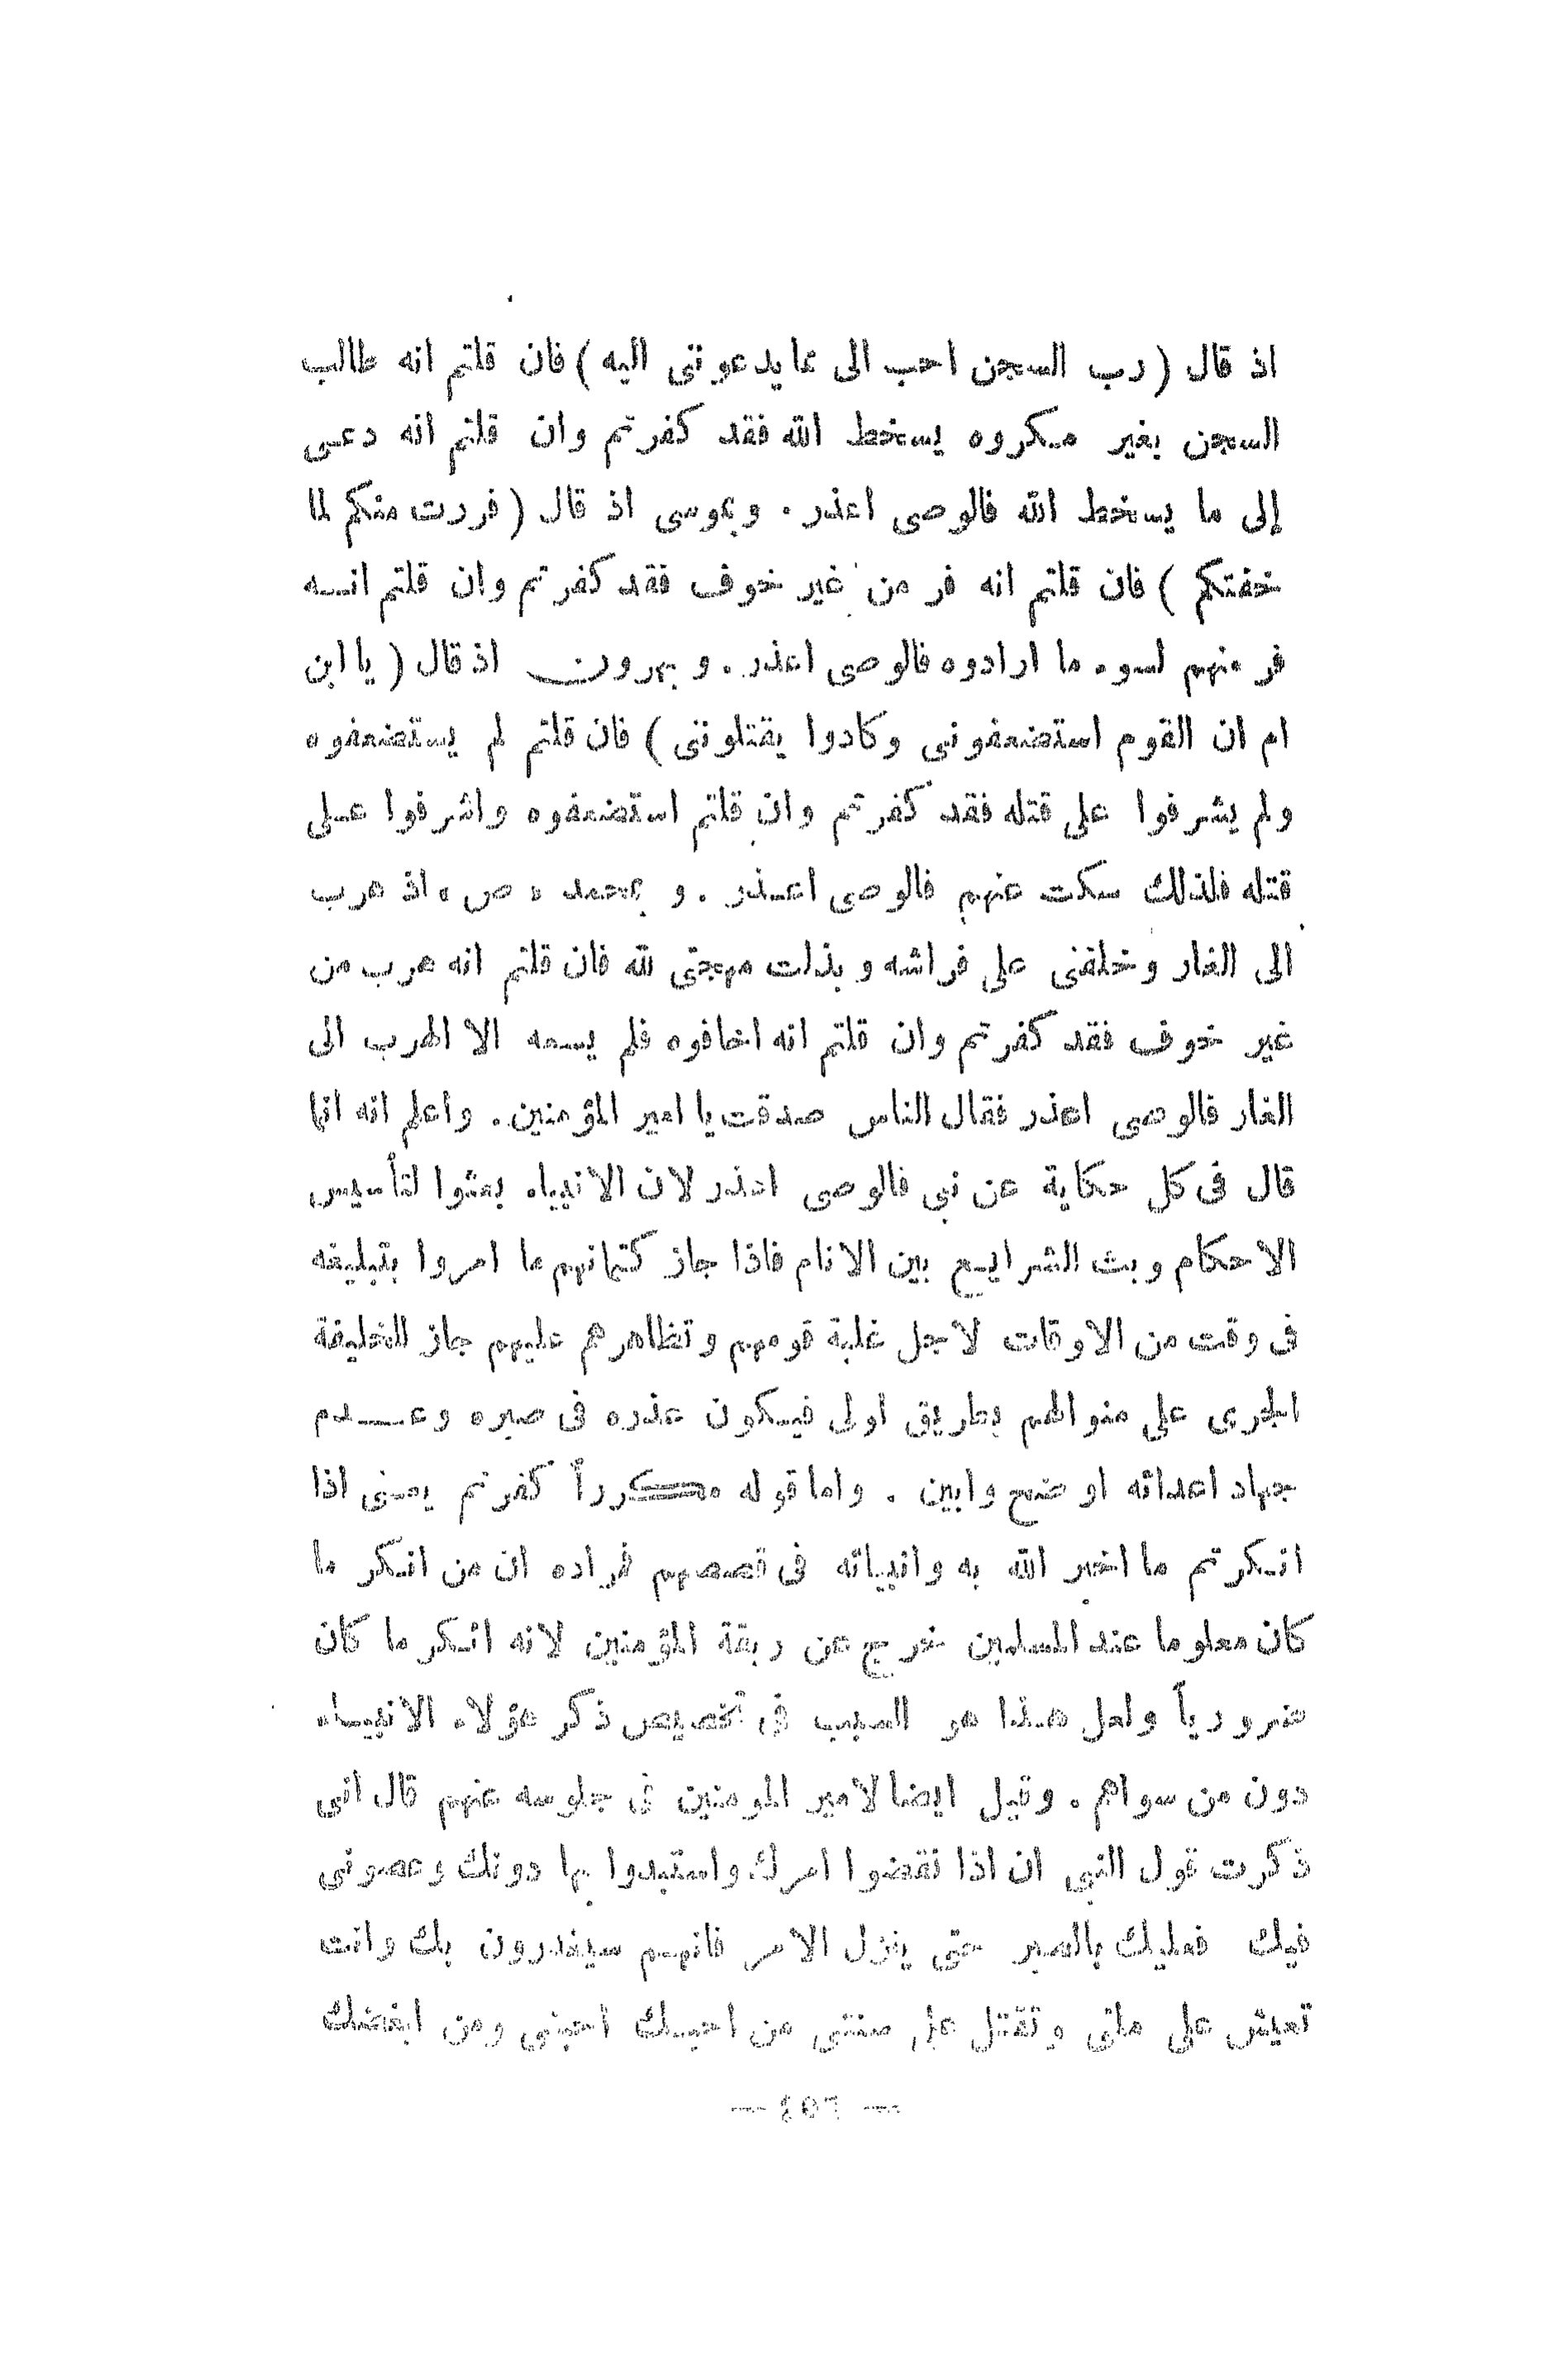 اذ قال ( رب السجن احب الى مما يدعوننى اليه ) فان قلتم انه طالب
السجن بغير مكروه يسخط الله فقد كفرتم وان قلتم انه دعى
إلى ما يسخط الله فالوصى اعذر . وبموسى اذ قال ( فررت منكم لما
خفتكم ) فان قلتم انه فر من غير خوف فقد كفرتم وان قلتم انه
فر منهم لسوء ما ارادوه فالوصى اعذر . و بهرون اذ قال ( يا ابن
ام ان القوم استضعفونى وكادوا يقتلوننى ) فان قلتم لم يستضعفوه
ولم يشرفوا على قتله فقد كفرتم وان قلتم استضعفوه واشرفوا على
قتله فلذلك سكت عنهم فالوصى اعذر . و بمحمد « ص » اذ هرب
الى الغار وخلفنى على فراشه و بذلت مهجتى لله فان قلتم انه هرب من
غير خوف فقد كفرتم وان قلتم انه اخافوه فلم يسعه الا الهرب الى
الغار فالوصى اعذر فقال الناس صدقت يا امير المؤمنين . واعلم انه انما
قال فى كل حكاية عن نبى فالوصى اعذر لان الانبياء بعثوا لتأسيس
الاحكام وبث الشرايع بين الانام فاذا جاز كتمانهم ما امروا بتبليغه
فى وقت من الاوقات لاجل غلبة قومهم وتظاهرهم عليهم جاز للخليفة
الجرى على منوالهم بطريق اولى فيكون عذره فى صبره وعدم
جهاد اعدائه اوضح وابين . واما قوله مكرراً كفرتم يعنى اذا
انكرتم ما اخبر الله به وانبيائه فى قصصهم فمراده ان من انكر ما
كان معلوما عند المسلمين خرج عن ربقة المؤمنين لانه انكر ما كان
ضرورياً ولعل هذا هو السبب فى تخصيص ذكر هؤلاء الانبياء
دون من سواهم . وقيل ايضا لامير المومنين فى جلوسه عنهم قال انى
ذكرت قول النبى ان اذا نقضوا امرك واستبدوا بها دونك وعصونى
فيك فعليك بالصبر حتى ينزل الامر فانهم سيغدرون بك وانت
تعيش على ملتى وتقتل على سنتى من احبك احبنى ومن ابغضك
— ٤٥٦ —